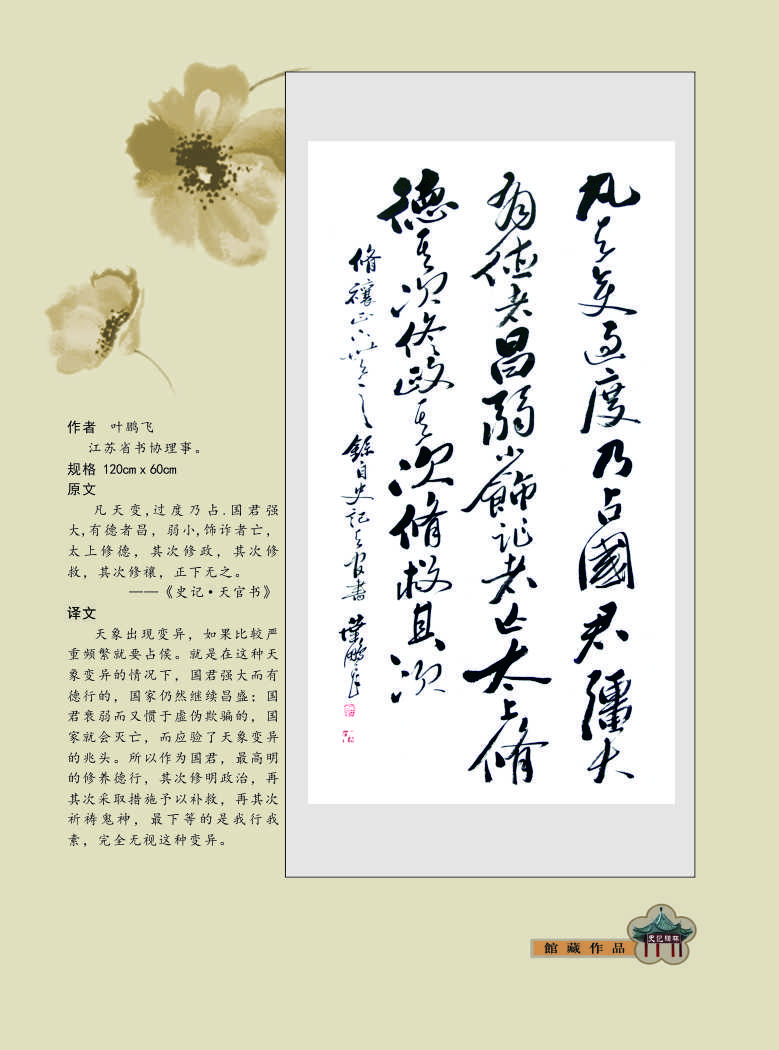 凡天变过度乃占國君彊大
有德者昌弱小飾詐者亡太上修
德其次修政其次修救其次
修禳正下無之 錄自史記天官書 葉鵬飛
作者 叶鹏飞
江苏省书协理事。
规格 120cm x 60cm
原文
凡天变,过度乃占.国君强
大,有德者昌，弱小,饰诈者亡，
太上修德，其次修政，其次修
救，其次修禳，正下无之。
——《史记·天官书》
译文
天象出现变异，如果比较严
重频繁就要占候。就是在这种天
象变异的情况下，国君强大而有
德行的，国家仍然继续昌盛；国
君衰弱而又惯于虚伪欺骗的，国
家就会灭亡，而应验了天象变异
的兆头。所以作为国君，最高明
的修养德行，其次修明政治，再
其次采取措施予以补救，再其次
祈祷鬼神，最下等的是我行我
素，完全无视这种变异。
館藏作品
史记碑林